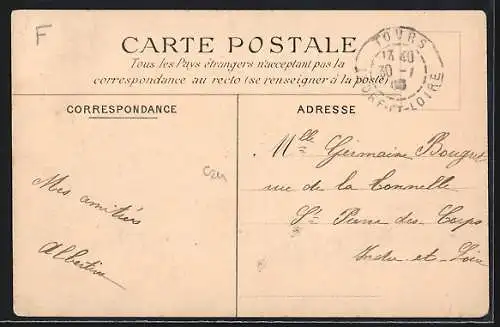 F
CARTE POSTALE
Tous les Pays étrangers n'acceptant pas la
correspondance au recto (se renseigner à la poste)
TOURS
13 40
30 - 1
INDRE-ET-LOIRE
CORRESPONDANCE
Mes amitiés
Albertine
ADRESSE
Mlle Germaine Bougret
rue de la Tonnelle
St Pierre des Corps
Indre et Loire